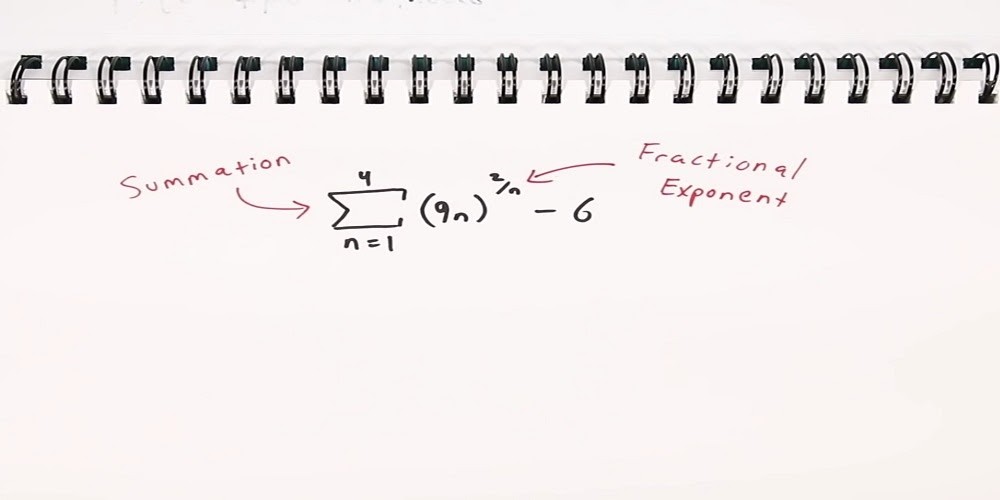 Summation
Fractional
Exponent
4
∑ (9n)^2/n - 6
n=1